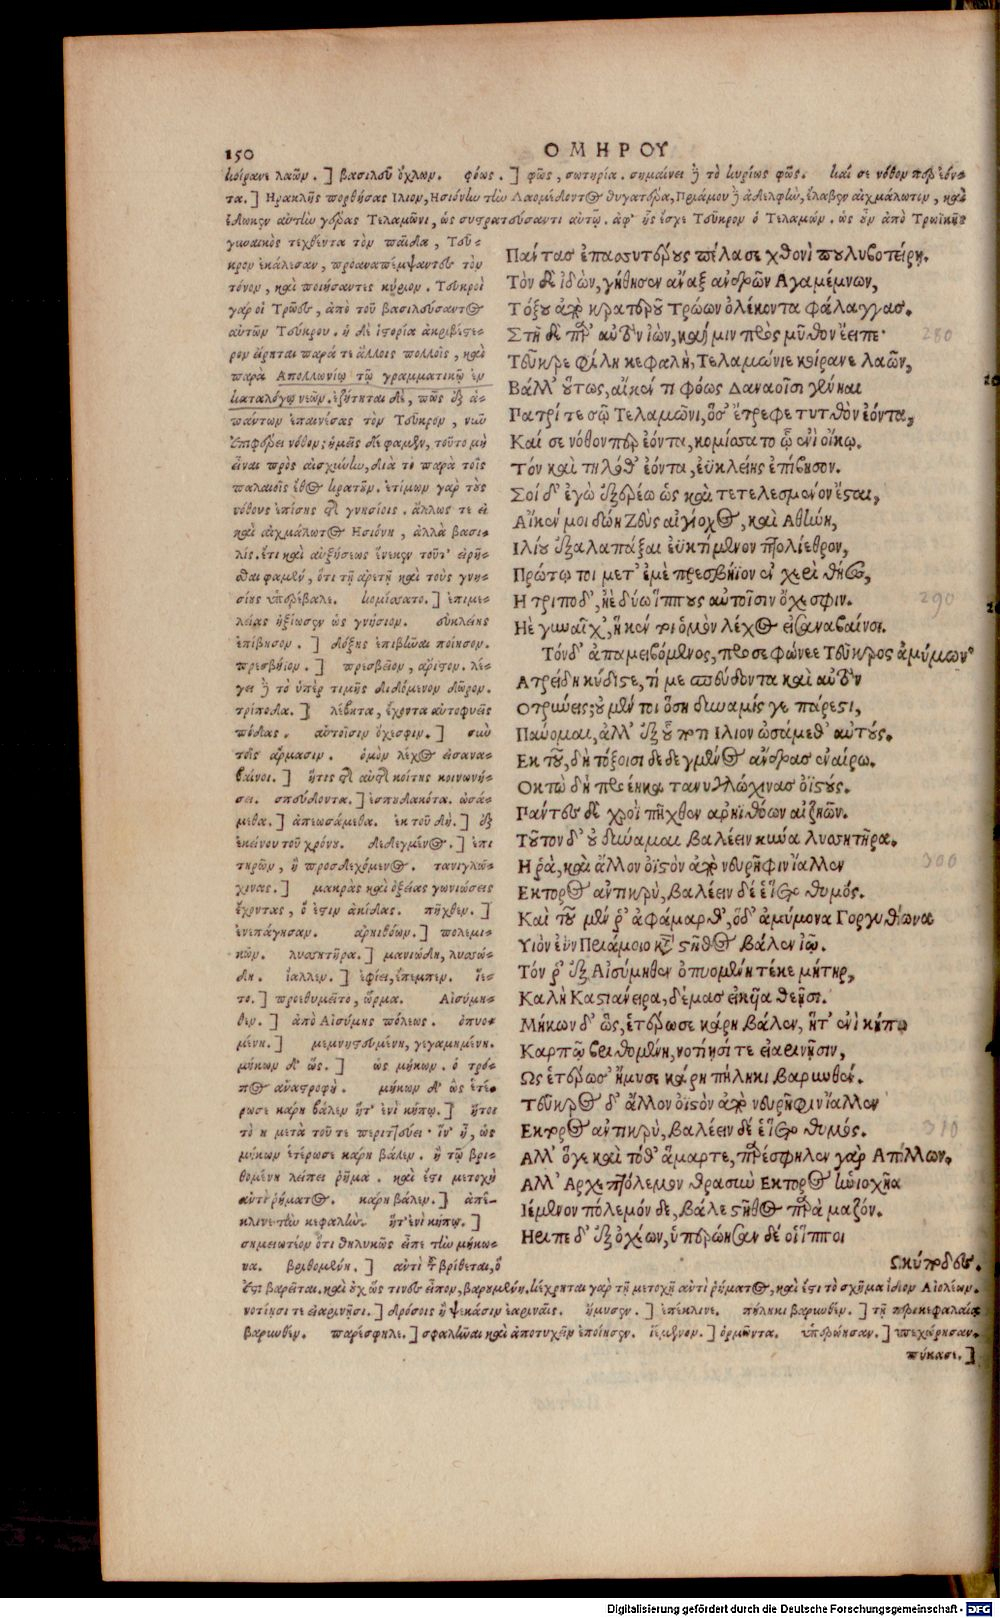 150
ΟΜΗΡΟΥ
κοίρανε λαῶν. ] βασιλεῦ ὄχλων. φόως. ] φῶς, σωτηρία. σημαίνει καὶ τὸ κυρίως φῶς. καί σε νόθον περ ἐόν-
τα. ] Ηρακλῆς πορθήσας Ιλιον, Ησιόνην τὴν Λαομέδοντος θυγατέρα, Πριάμου καὶ ἀδελφὴν, ἔλαβεν αἰχμάλωτιν, καὶ
ἔδωκεν αὐτὴν γέρας Τελαμῶνι, ὡς συστρατεύσαντι αὐτῷ. ἀφ' ἧς ἔσχε Τεῦκρον ὁ Τελαμών. ὡς οὖν ἀπὸ Τρωϊκῆς
γυναικὸς τεχθέντα τὸν παῖδα, Τεῦ-
κρον ἐκάλεσαν, προαναπέμψαντες τὸν
τόνον, καὶ ποιήσαντες κύριον. Τευκροὶ
γὰρ οἱ Τρῶες, ἀπὸ τοῦ βασιλεύσαντος
αὐτῶν Τεύκρου. ἡ δὲ ἱστορία ἀκριβέστε-
ρον εἴρηται παρά τε ἄλλοις πολλοῖς, καὶ
παρὰ Απολλωνίῳ τῷ γραμματικῷ ἐν
καταλόγῳ νεῶν. ἐζήτηται δὲ, πῶς ἐξ ἁ-
πάντων ἐπαινέσας τὸν Τεῦκρον, νῦν
ἐπιφέρει νόθον; ἡμεῖς δέ φαμεν, τοῦτο μὴ
εἶναι πρὸς αἰσχύνην, διὰ τὸ παρὰ τοῖς
παλαιοῖς ἔθος κρατεῖν. ἐτίμων γὰρ τοὺς
νόθους ἐπίσης τοῖς γνησίοις. ἄλλως τε εἰ
καὶ αἰχμάλωτος Ησιόνη, ἀλλὰ βασι-
λίς. ἔτι καὶ αὐξήσεως ἕνεκεν τοῦτ' εἰρῆ-
σθαι φαμὲν, ὅτι τῇ ἀρετῇ καὶ τοὺς γνη-
σίους ὑπερέβαλε. κομίσατο. ] ἐπιμε-
λείας ἠξίωσεν ὡς γνήσιον. εὐκλείης
ἐπίβησον. ] δόξης ἐπιβῆναι ποίησον.
πρεσβήιον. ] πρεσβεῖον, ἄριστον. λέ-
γει καὶ τὸ ὑπὲρ τιμῆς διδόμενον δῶρον.
τρίποδα. ] λέβητα, ἔχοντα αὐτοφυεῖς
πόδας. αὐτοῖσιν ὄχεσφιν. ] σὺν
τοῖς ἅρμασιν. ὁμὸν λέχος εἰσανα-
βαίνοι. ] ἥτις τῆς αὐτῆς κοίτης κοινωνή-
σει. σπεύδοντα. ] ἐσπουδακότα. ὠσά-
μεθα. ] ἀπεωσάμεθα. ἐκ τοῦ δή. ] ἐξ
ἐκείνου τοῦ χρόνου. δεδεγμένος. ] ἐπι
τηρῶν, ἢ προσδεχόμενος. τανυγλώ-
χινας. ] μακρὰς καὶ ὀξείας γωνιώσεις
ἔχοντας, ὅ ἐστιν ἀκίδας. πῆχθεν. ]
ἐνεπάγησαν. ἀρηιθόων. ] πολεμι-
κῶν. λυσσητῆρα. ] μανιώδη, λυσσώ-
δη. ἴαλλεν. ] ἐφίει, ἔπεμπεν. ἵε-
το. ] προεθυμεῖτο, ὥρμα. Αἰσύμη-
θεν. ] ἀπὸ Αἰσύμης πόλεως. ὀπυο-
μένη. ] μεμνηστευμένη, γεγαμημένη.
μήκων δ' ὥς. ] ὡς μήκων. ὁ τρό-
πος ἀναστροφή. μήκων δ' ὣς ἑτέ-
ρωσε κάρη βάλεν ἥτ' ἐνὶ κήπῳ. ] ἤτοι
τὸ ἡ μετὰ τοῦ τε περιττεύει· ἵν' ᾖ, ὡς
μήκων ἑτέρωσε κάρη βάλεν. ἢ τῷ βρι-
θομένη λείπει ῥῆμα. καὶ ἔστι μετοχὴ
αὐτὶ ῥήματος. κάρη βάλεν. ] ἀπέ-
κλινε τὴν κεφαλήν. ἥτ' ἐνὶ κήπῳ. ]
σημειωτέον ὅτι θηλυκῶς εἶπε τὴν μήκω-
να. βριθομένη. ] αὐτὶ τοῦ βρίθεται, ὅ
ἐστι βαρεῖται. καὶ οὐχ ὥς τινες εἶπον, βαρυμένη. κέχρηται γὰρ τῇ μετοχῇ αὐτὶ ῥήματος, καὶ ἔστι τὸ σχῆμα ἴδιον Αἰολέων.
νοτίῃσί τε εἰαρινῇσι. ] δρόσοις ἢ ψεκάσιν ἐαριναῖς. ἤμυσεν. ] ἐπέκλινε. πήληκι βαρυνθέν. ] τῇ περικεφαλαίᾳ
βαρυνθέν. παρέσφηλε. ] σφαλῆναι καὶ ἀποτυχεῖν ἐποίησεν. ἱέμενον. ] ὁρμῶντα. ὑπερώησαν. ] ὑπεχώρησαν.
πύκασε. ]
Πάντας ἐπασσυτέρους πέλασε χθονὶ πουλυβοτείρῃ.
Τὸν δὲ ἰδὼν, γήθησεν ἄναξ ἀνδρῶν Αγαμέμνων,
Τόξου ἄπο κρατεροῦ Τρώων ὀλέκοντα φάλαγγας.
Στῆ δὲ παρ' αὐτὸν ἰὼν, καί μιν πρὸς μῦθον ἔειπε·
280
Τεῦκρε φίλη κεφαλὴ, Τελαμώνιε κοίρανε λαῶν,
Βάλλ' οὕτως, αἴκέν τι φόως Δαναοῖσι γένηαι
Πατρί τε σῷ Τελαμῶνι, ὅς σ' ἔτρεφε τυτθὸν ἐόντα,
Καί σε νόθον περ ἐόντα, κομίσατο ᾧ ἐνὶ οἴκῳ.
Τὸν καὶ τηλόθ' ἐόντα, ἐϋκλείης ἐπίβησον.
Σοὶ δ' ἐγὼ ἐξερέω ὡς καὶ τετελεσμένον ἔσται,
Αἴκέν μοι δώῃ Ζεὺς αἰγίοχος, καὶ Αθήνη,
Ιλίου ἐξαλαπάξαι ἐϋκτίμενον πτολίεθρον,
Πρώτῳ τοι μετ' ἐμὲ πρεσβήϊον ἐν χερὶ θήσω,
Η τρίποδ', ἠὲ δύω ἵππους αὐτοῖσιν ὄχεσφιν.
290
Ηὲ γυναῖχ', ἥ κέν τοι ὁμὸν λέχος εἰσαναβαίνοι.
Τὸν δ' ἀπαμειβόμενος, προσεφώνεε Τεῦκρος ἀμύμων·
Ατρείδη κύδιστε, τί με σπεύδοντα καὶ αὐτὸν
Οτρύνεις; οὐ μέν τοι ὅση δύναμίς γε πάρεστι,
Παύομαι, ἀλλ' ἐξ οὗ προτὶ Ιλιον ὠσάμεθ' αὐτούς.
Εκ τοῦ, δὴ τόξοισι δεδεγμένος ἄνδρας ἐναίρω.
Οκτὼ δὴ προέηκα τανυγλώχινας ὀϊστούς.
Πάντες δὲ χροῒ πῆχθεν ἀρηϊθόων αἰζηῶν.
Τοῦτον δ' οὐ δύναμαι βαλέειν κύνα λυσσητῆρα.
Η ῥὰ, καὶ ἄλλον ὀϊστὸν ἀπὸ νευρῆφιν ἴαλλεν
300
Εκτορος ἀντικρὺ, βαλέειν δέ ἑ ἵετο θυμός.
Καὶ τοῦ μέν ῥ' ἀφάμαρθ', ὁ δ' ἀμύμονα Γοργυθίωνα
Υἱὸν ἐῢν Πριάμοιο κατὰ στῆθος βάλεν ἰῷ.
Τόν ῥ' ἐξ Αἰσύμηθεν ὀπυομένη τέκε μήτηρ,
Καλὴ Καστιάνειρα, δέμας εἰκυῖα θεῇσι.
Μήκων δ' ὣς, ἑτέρωσε κάρη βάλεν, ἥτ' ἐνὶ κήπῳ
Καρπῷ βριθομένη, νοτίῃσί τε εἰαρινῇσιν,
Ως ἑτέρωσ' ἤμυσε κάρη πήληκι βαρυνθέν.
Τεῦκρος δ' ἄλλον ὀϊστὸν ἀπὸ νευρῆφιν ἴαλλεν
Εκτορος ἀντικρὺ, βαλέειν δέ ἑ ἵετο θυμός.
310
Αλλ' ὅγε καὶ τόθ' ἅμαρτε, παρέσφηλεν γὰρ Απόλλων.
Αλλ' Αρχεπτόλεμον θρασὺν Εκτορος ἡνιοχῆα
Ιέμενον πόλεμόνδε, βάλε στῆθος παρὰ μαζόν.
Ηριπε δ' ἐξ ὀχέων, ὑπερώησαν δέ οἱ ἵπποι
Ωκύποδες.
Digitalisierung gefördert durch die Deutsche Forschungsgemeinschaft - DFG